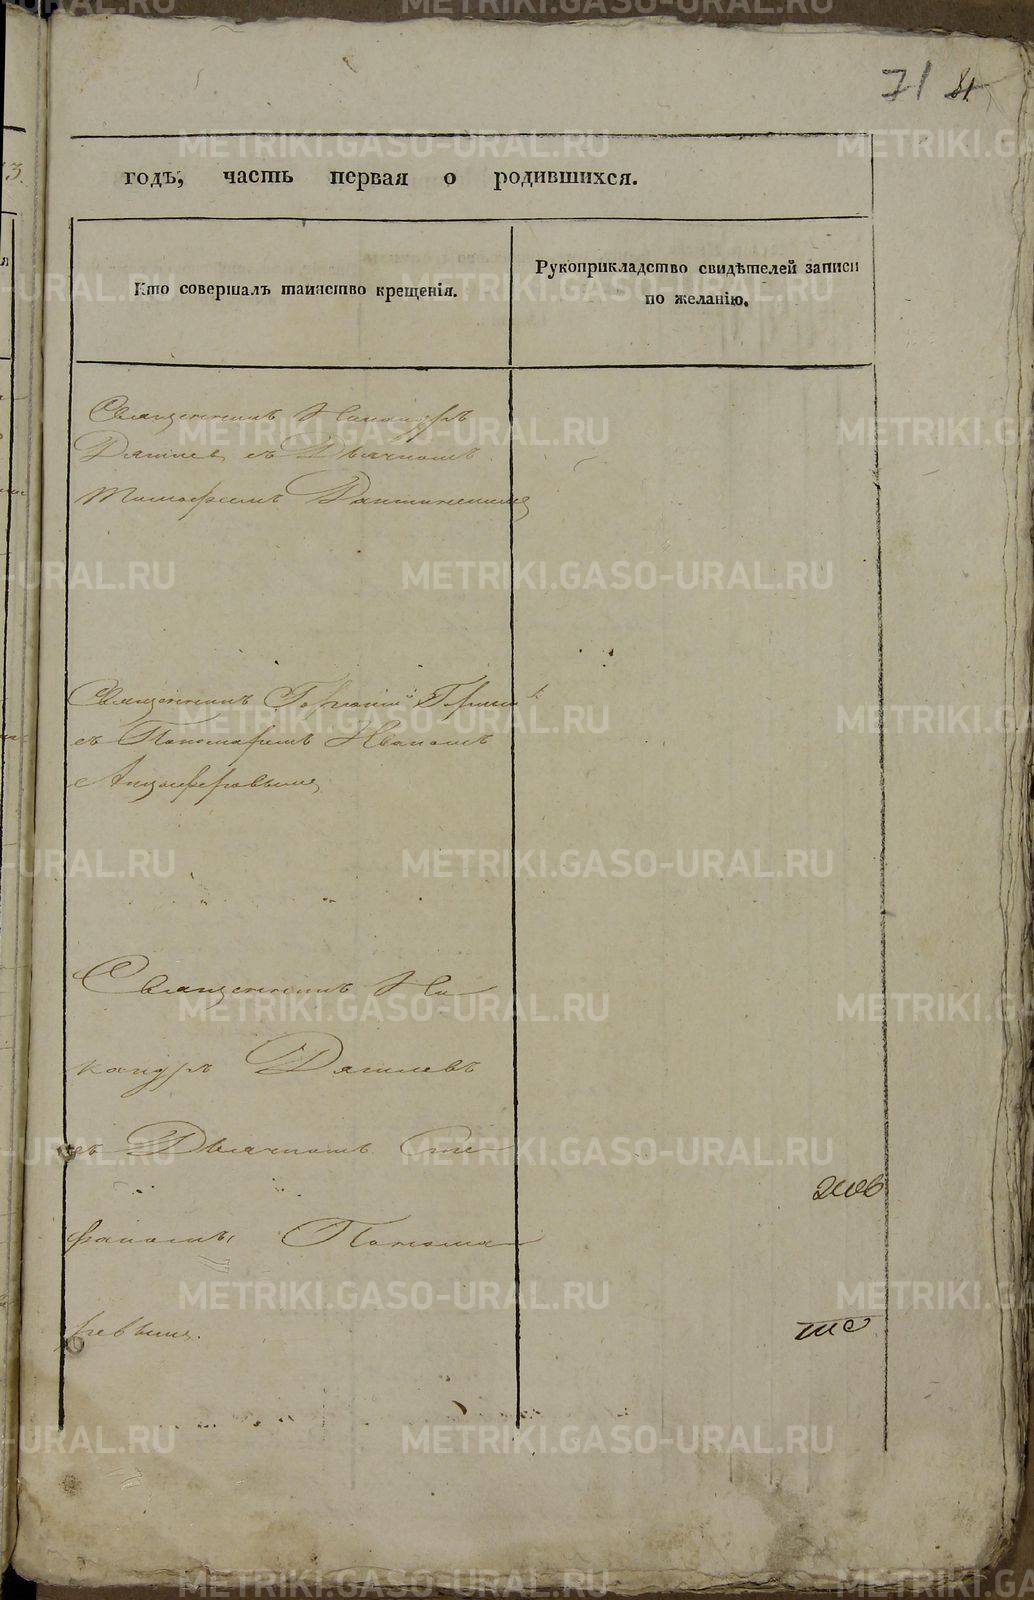 71 81
годъ, часть первая о родившихся.
Кто совершалъ таинство крещенія.
Рукоприкладство свидѣтелей записи
по желанію.
Священникъ Никандръ
Дягилев съ Дьячкомъ
Тимофеемъ
Священникъ Георгій
съ Пономаремъ Иваномъ
Анциферовымъ
Священникъ Ни
кандръ Дягилевъ
съ Дьячкомъ Сте
фаномъ Понома
ревымъ.
METRIKI.GASO-URAL.RU